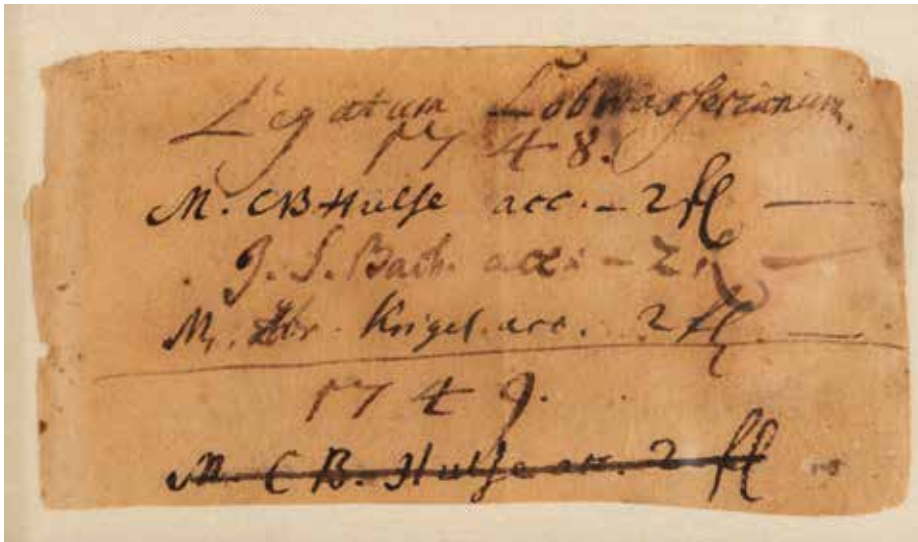 Legatum Lobwasserianum.
1748.
M. CB Hulse acc. – 2 fl —
J. S. Bach. acc: – 2 fl —
M. Abr. Krigel. acc. 2 fl —
1749.
M. C B. Hulse acc. 2 fl